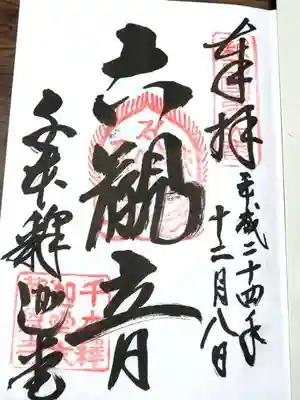 奉拝
平成二十四年
十二月八日
六観音
千本釋迦堂